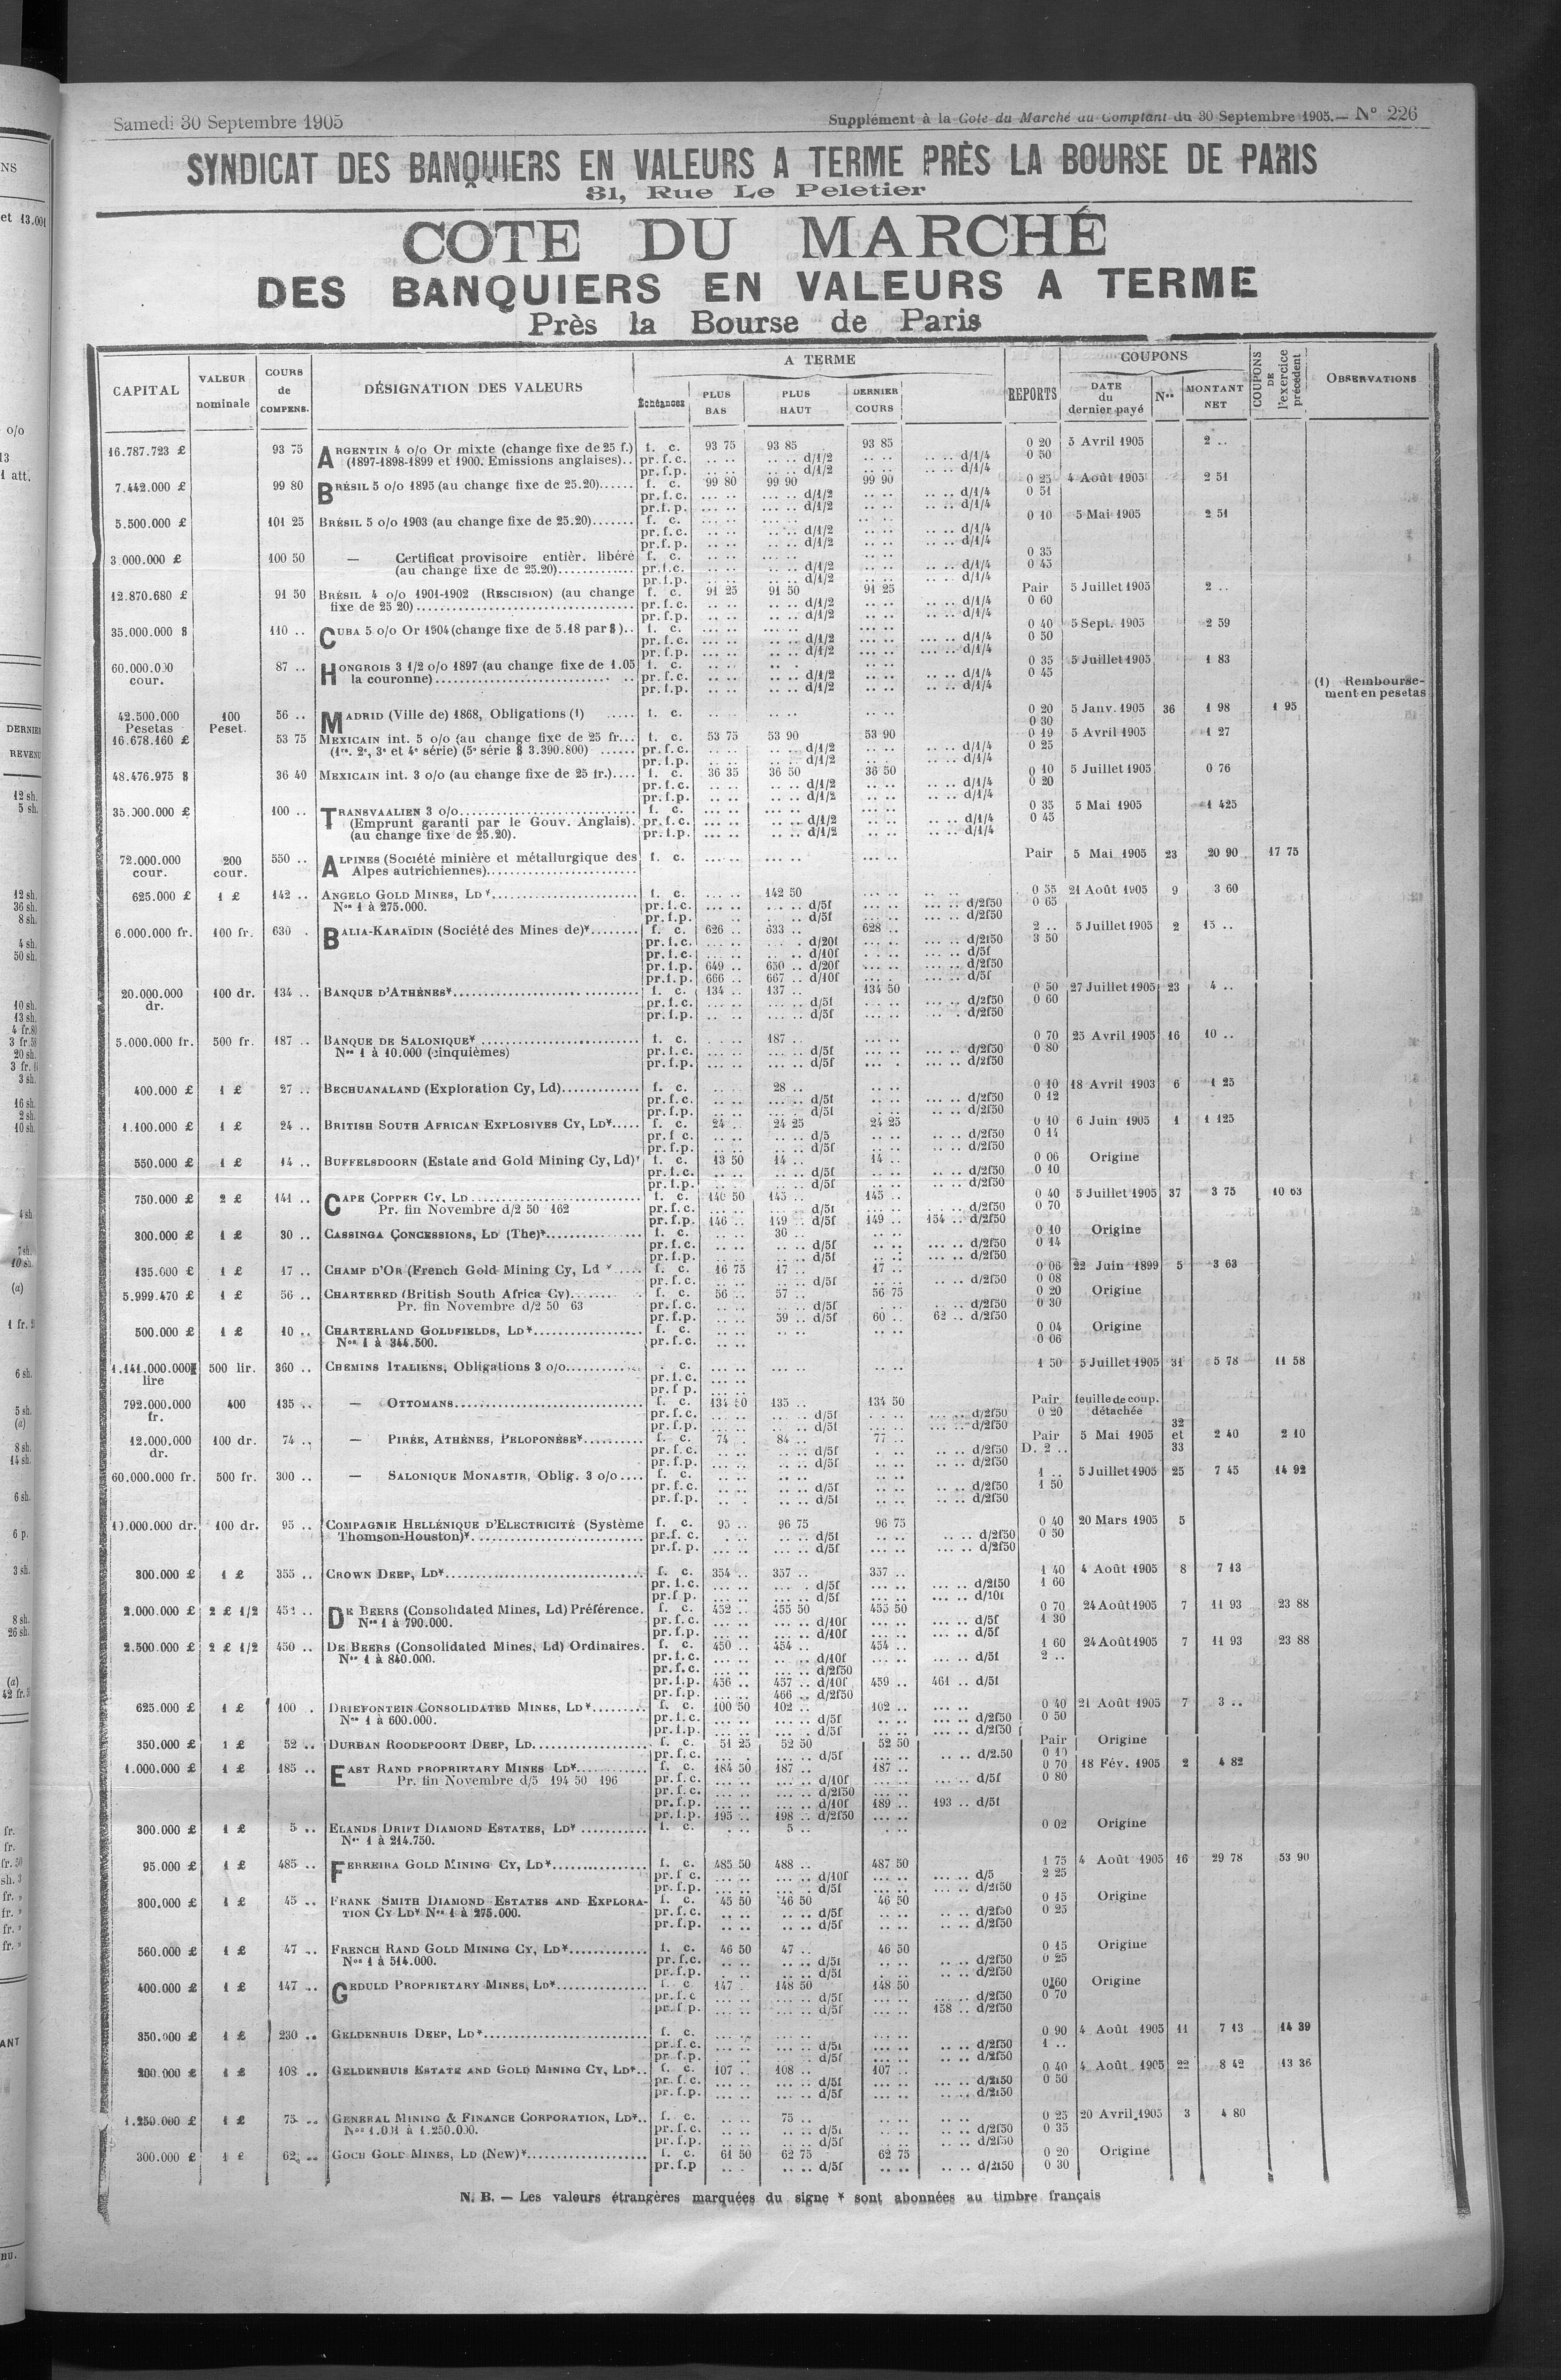 Samedi 30 Septembre 1905
Supplément à la Cote du Marché au Comptant du 30 Septembre 1905.— N° 226
SYNDICAT DES BANQUIERS EN VALEURS A TERME PRÈS LA BOURSE DE PARIS
31, Rue Le Peletier
COTE DU MARCHÉ
DES BANQUIERS EN VALEURS A TERME
Près la Bourse de Paris
CAPITAL VALEUR nominale COURS de COMPENS. DÉSIGNATION DES VALEURS A TERME Échéances PLUS BAS PLUS HAUT DERNIER COURS REPORTS COUPONS DATE du dernier payé Nos MONTANT NET COUPONS DE l'exercice précédent OBSERVATIONS
16.787.723 £ 93 75 ARGENTIN 4 o/o Or mixte (change fixe de 25 f.) f. c. 93 75 93 85 93 85 0 20 5 Avril 1905 2 ..
(1897-1898-1899 et 1900. Emissions anglaises).. pr.f.c. d/1/2 d/1/4 0 50
pr.f.p. d/1/2 d/1/4
7.442.000 £ 99 80 BRÉSIL 5 o/o 1895 (au change fixe de 25.20)...... f. c. 99 80 99 90 99 90 0 25 4 Août 1905 2 51
pr.f.c. d/1/2 d/1/4 0 51
pr.f.p. d/1/2 d/1/4
5.500.000 £ 101 25 BRÉSIL 5 o/o 1903 (au change fixe de 25.20)....... f. c. 0 10 5 Mai 1905 2 51
pr.f.c. d/1/2 d/1/4
pr.f.p. d/1/2 d/1/4
3.000.000 £ 100 50 — Certificat provisoire entièr. libéré f. c. 0 35
(au change fixe de 25.20)............. pr.f.c. d/1/2 d/1/4 0 45
pr.f.p. d/1/2 d/1/4
12.870.680 £ 91 50 BRÉSIL 4 o/o 1901-1902 (RESCISION) (au change f. c. 91 25 91 50 91 25 Pair 5 Juillet 1905 2 ..
fixe de 25 20) pr.f.c. d/1/2 d/1/4 0 60
pr.f.p. d/1/2 d/1/4
35.000.000 $ 110 .. CUBA 5 o/o Or 1904 (change fixe de 5.18 par $).. f. c. 0 40 5 Sept. 1905 2 59
pr.f.c. d/1/2 d/1/4 0 50
pr.f.p. d/1/2 d/1/4
60.000.000 cour. 87 .. HONGROIS 3 1/2 o/o 1897 (au change fixe de 1.05 f. c. 0 35 5 Juillet 1905 1 83
la couronne) pr.f.c. d/1/2 d/1/4 0 45
pr.f.p. d/1/2 d/1/4 (1) Remboursement en pesetas
42.500.000 Pesetas 100 Peset. 56 .. MADRID (Ville de) 1868, Obligations (1) ..... f. c. 0 20 5 Janv. 1905 36 1 98 1 95
0 30
16.678.160 £ 53 75 MEXICAIN int. 5 o/o (au change fixe de 25 fr... f. c. 53 75 53 90 53 90 0 19 5 Avril 1905 1 27
(1re, 2e, 3e et 4e série) (5e série $ 3.390.800) ...... pr.f.c. d/1/2 d/1/4 0 25
pr.f.p. d/1/2 d/1/4
48.476.975 $ 36 40 MEXICAIN int. 3 o/o (au change fixe de 25 fr.).... f. c. 36 35 36 50 36 50 0 10 5 Juillet 1905 0 76
pr.f.c. d/1/2 d/1/4 0 20
pr.f.p. d/1/2 d/1/4
35.000.000 £ 100 .. TRANSVAALIEN 3 o/o f. c. 0 35 5 Mai 1905 1 425
(Emprunt garanti par le Gouv. Anglais). pr.f.c. d/1/2 d/1/4 0 45
(au change fixe de 25.20). pr.f.p. d/1/2 d/1/4
72.000.000 cour. 200 cour. 550 .. ALPINES (Société minière et métallurgique des f. c. Pair 5 Mai 1905 23 20 90 17 75
Alpes autrichiennes)
625.000 £ 1 £ 142 .. ANGELO GOLD MINES, LD * f. c. 142 50 0 55 21 Août 1905 9 3 60
Nos 1 à 275.000. pr.f.c. d/5f d/2f50 0 65
pr.f.p. d/5f d/2f50
6.000.000 fr. 100 fr. 630 . BALIA-KARAÏDIN (Société des Mines de)* f. c. 626 .. 633 .. 628 .. 2 .. 5 Juillet 1905 2 15 ..
pr.f.c. d/20f d/2f50 3 50
pr.f.c. d/10f d/5f
pr.f.p. 649 .. 650 .. d/20f d/2f50
pr.f.p. 666 .. 667 .. d/10f d/5f
20.000.000 dr. 100 dr. 134 .. BANQUE D'ATHÈNES* f. c. 134 .. 137 .. 134 50 0 50 27 Juillet 1905 23 4 ..
pr.f.c. d/5f d/2f50 0 60
pr.f.p. d/5f d/2f50
5.000.000 fr. 500 fr. 187 .. BANQUE DE SALONIQUE* f. c. 187 .. 0 70 25 Avril 1905 16 10 ..
Nos 1 à 10.000 (cinquièmes) pr.f.c. d/5f d/2f50 0 80
pr.f.p. d/5f d/2f50
400.000 £ 1 £ 27 .. BECHUANALAND (Exploration Cy, Ld) f. c. 28 .. 0 10 18 Avril 1903 6 1 25
pr.f.c. d/5f d/2f50 0 12
pr.f.p. d/5f d/2f50
1.100.000 £ 1 £ 24 .. BRITISH SOUTH AFRICAN EXPLOSIVES CY, LD*..... f. c. 24 .. 24 25 24 25 0 10 6 Juin 1905 1 1 125
pr.f c. d/5 d/2f50 0 14
pr.f.p. d/5f d/2f50
550.000 £ 1 £ 14 .. BUFFELSDOORN (Estate and Gold Mining Cy, Ld)* f. c. 13 50 14 .. 14 .. 0 06 Origine
pr.f.c. d/5f d/2f50 0 10
pr.f.p. d/5f d/2f50
750.000 £ 2 £ 141 .. CAPE COPPER CY, LD f. c. 140 50 145 .. 145 .. 0 40 5 Juillet 1905 37 3 75 10 63
Pr. fin Novembre d/2 50 162 pr.f.c. d/5f d/2f50 0 70
pr.f.p. 146 .. 149 .. d/5f 149 .. 154 .. d/2f50
300.000 £ 1 £ 30 .. CASSINGA CONCESSIONS, LD (The)* f. c. 30 .. 0 10 Origine
pr.f.c. d/5f d/2f50 0 14
pr.f.p. d/5f d/2f50
135.000 £ 1 £ 17 .. CHAMP D'OR (French Gold Mining Cy, Ld * .... f. c. 16 75 17 .. 17 .. 0 06 22 Juin 1899 5 3 63
pr.f.c. d/5f d/2f50 0 08
5.999.470 £ 1 £ 56 .. CHARTERED (British South Africa Cy) f. c. 56 .. 57 .. 56 75 0 20 Origine
Pr. fin Novembre d/2 50 63 pr.f.c. d/5f d/2f50 0 30
pr.f.p. 59 .. d/5f 60 .. 62 .. d/2f50
500.000 £ 1 £ 10 .. CHARTERLAND GOLDFIELDS, LD* f. c. 0 04 Origine
Nos 1 à 344.500. pr.f.c. 0 06
1.141.000.000 lire 500 lir. 360 .. CHEMINS ITALIENS, Obligations 3 o/o . c. 1 50 5 Juillet 1905 31 5 78 11 58
pr.f.c.
pr.f p.
792.000.000 fr. 400 135 .. — OTTOMANS f. c. 134 50 135 .. 134 50 Pair feuille de coup. détachée
pr.f.c. d/5f d/2f50 0 20
pr.f.p. d/5f d/2f50
12.000.000 dr. 100 dr. 74 .. — PIRÉE, ATHÈNES, PELOPONÈSE* f. c. 74 . 84 .. 77 .. Pair 5 Mai 1905 32 et 33 2 40 2 10
pr.f.c. d/5f d/2f50 D. 2 ..
pr.f.p. d/5f d/2f50
60.000.000 fr. 500 fr. 300 .. — SALONIQUE MONASTIR, Oblig. 3 o/o.... f. c. 1 .. 5 Juillet 1905 25 7 45 14 92
pr.f.c. d/5f d/2f50 1 50
pr.f.p. d/5f d/2f50
10.000.000 dr. 100 dr. 95 .. COMPAGNIE HELLÉNIQUE D'ELECTRICITÉ (Système f. c. 95 .. 96 75 96 75 0 40 20 Mars 1905 5
Thomson-Houston)* pr.f. c. d/5f d/2f50 0 50
pr.f.p. d/5f d/2f50
300.000 £ 1 £ 355 .. CROWN DEEP, LD* f. c. 354 .. 357 .. 357 .. 1 40 4 Août 1905 8 7 13
pr.f.c. d/5f d/2f50 1 60
pr.f p. d/5f d/10f
2.000.000 £ 2 £ 1/2 452 .. DE BEERS (Consolidated Mines, Ld) Préférence. f. c. 452 .. 455 50 455 50 0 70 24 Août 1905 7 11 93 23 88
Nos 1 à 790.000. pr.f.c. d/10f d/5f 1 30
pr.f.p. d/10f d/5f
2.500.000 £ 2 £ 1/2 450 .. DE BEERS (Consolidated Mines, Ld) Ordinaires. f. c. 450 .. 454 .. 454 .. 1 60 24 Août 1905 7 11 93 23 88
Nos 1 à 840.000. pr.f.c. d/10f d/5f 2 ..
pr.f.c. d/2f50
pr.f.p. 456 .. 457 .. d/10f 459 .. 461 .. d/5f
pr.f.p. 466 .. d/2f50
625.000 £ 1 £ 100 . DRIEFONTEIN CONSOLIDATED MINES, LD* f. c. 100 50 102 .. 102 .. 0 40 21 Août 1905 7 3 ..
Nos 1 à 600.000. pr.f.c. d/5f d/2f50 0 50
pr.f.p. d/5f d/2f50
350.000 £ 1 £ 52 .. DURBAN ROODEPOORT DEEP, LD f. c. 51 25 52 50 52 50 Pair Origine
pr.f.c. d/5f d/2.50 0 10
1.000.000 £ 1 £ 185 .. EAST RAND PROPRIETARY MINES LD* f. c. 184 50 187 .. 187 .. 0 70 18 Fév. 1905 2 4 82
Pr. fin Novembre d/5 194 50 196 pr.f.c. d/10f d/5f 0 80
pr.f.c. d/2f50
pr.f.p. d/10f 189 .. 193 .. d/5f
pr.f.p. 195 .. 198 .. d/2f50
300.000 £ 1 £ 5 .. ELANDS DRIFT DIAMOND ESTATES, LD* f. c. 5 .. 0 02 Origine
Nos 1 à 214.750.
95.000 £ 1 £ 485 .. FERREIRA GOLD MINING CY, LD* f. c. 485 50 488 .. 487 50 1 75 4 Août 1905 16 29 78 53 90
pr.f c. d/10f d/5 2 25
pr.f.p. d/5f d/2f50
300.000 £ 1 £ 45 .. FRANK SMITH DIAMOND ESTATES AND EXPLORA- f. c. 45 50 46 50 46 50 0 15 Origine
TION CY LD* Nos 1 à 275.000. pr.f.c. d/5f d/2f50 0 25
pr.f.p. d/5f d/2f50
560.000 £ 1 £ 47 .. FRENCH RAND GOLD MINING CY, LD* f. c. 46 50 47 .. 46 50 0 15 Origine
Nos 1 à 514.000. pr.f.c. d/5f d/2f50 0 25
pr.f.p. d/5f d/2f50
400.000 £ 1 £ 147 .. GEDULD PROPRIETARY MINES, LD* f. c 147 . 148 50 148 50 0 60 Origine
pr.f.c d/5f d/2f50 0 70
pr.f.p. d/5f 158 .. d/2f50
350.000 £ 1 £ 230 .. GELDENHUIS DEEP, LD* f. c. 0 90 4 Août 1905 11 7 13 14 39
pr.f.c. d/5f d/2f50 1 ..
pr.f.p. d/5f d/2f50
200.000 £ 1 £ 108 .. GELDENHUIS ESTATE AND GOLD MINING CY, LD*.. f. c. 107 .. 108 .. 107 .. 0 40 4 Août 1905 22 8 42 13 36
pr.f.c. d/5f d/2f50 0 50
pr.f.p. d/5f d/2f50
1.250.000 £ 1 £ 75 .. GENERAL MINING & FINANCE CORPORATION, LD*.. f. c. 75 .. 0 25 20 Avril 1905 3 4 80
Nos 1.001 à 1.250.000. pr.f.c. d/5f d/2f50 0 35
pr.f.p. d/5f d/2f50
300.000 £ 1 £ 62 .. GOCH GOLD MINES, LD (New)* f. c. 61 50 62 75 62 75 0 20 Origine
pr.f.p d/5f d/2f50 0 30
N. B. — Les valeurs étrangères marquées du signe * sont abonnées au timbre français